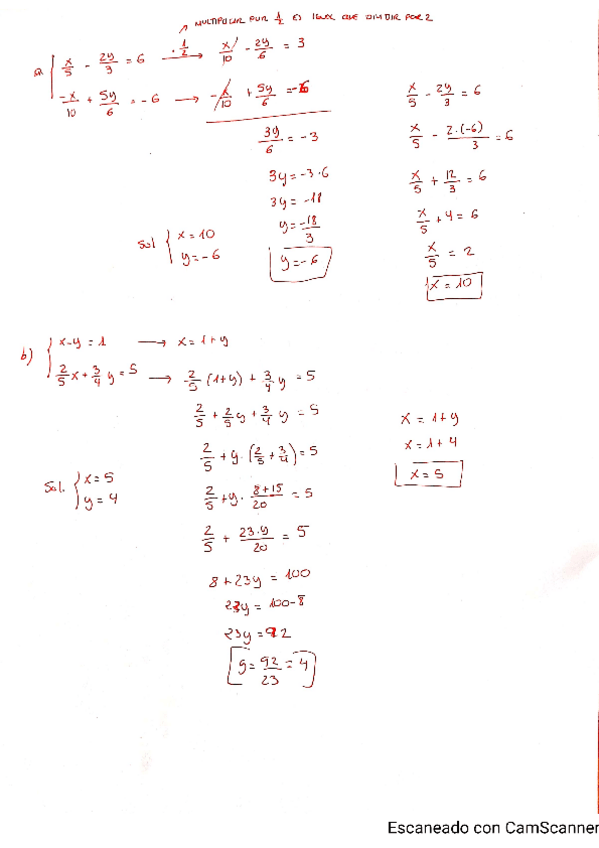 MULTIPLICAR POR 1/2 ES IGUAL QUE DIVIDIR POR 2
a) { x/5 - 2y/3 = 6 —· 1/2→ x/10 - 2y/6 = 3
-x/10 + 5y/6 = -6 → -x/10 + 5y/6 = -6
3y/6 = -3
3y = -3·6
3y = -18
y = -18/3
y = -6
x/5 - 2y/3 = 6
x/5 - 2·(-6)/3 = 6
x/5 + 12/3 = 6
x/5 + 4 = 6
x/5 = 2
x = 10
Sol { x = 10
y = -6
b) { x-y = 1 → x = 1+y
2/5 x + 3/4 y = 5 → 2/5 (1+y) + 3/4 y = 5
2/5 + 2/5 y + 3/4 y = 5
2/5 + y·(2/5 + 3/4) = 5
2/5 + y· 8+15/20 = 5
2/5 + 23·y/20 = 5
8+23y = 100
23y = 100-8
23y = 92
y = 92/23 = 4
x = 1+y
x = 1+4
x = 5
Sol. { x = 5
y = 4
Escaneado con CamScanner